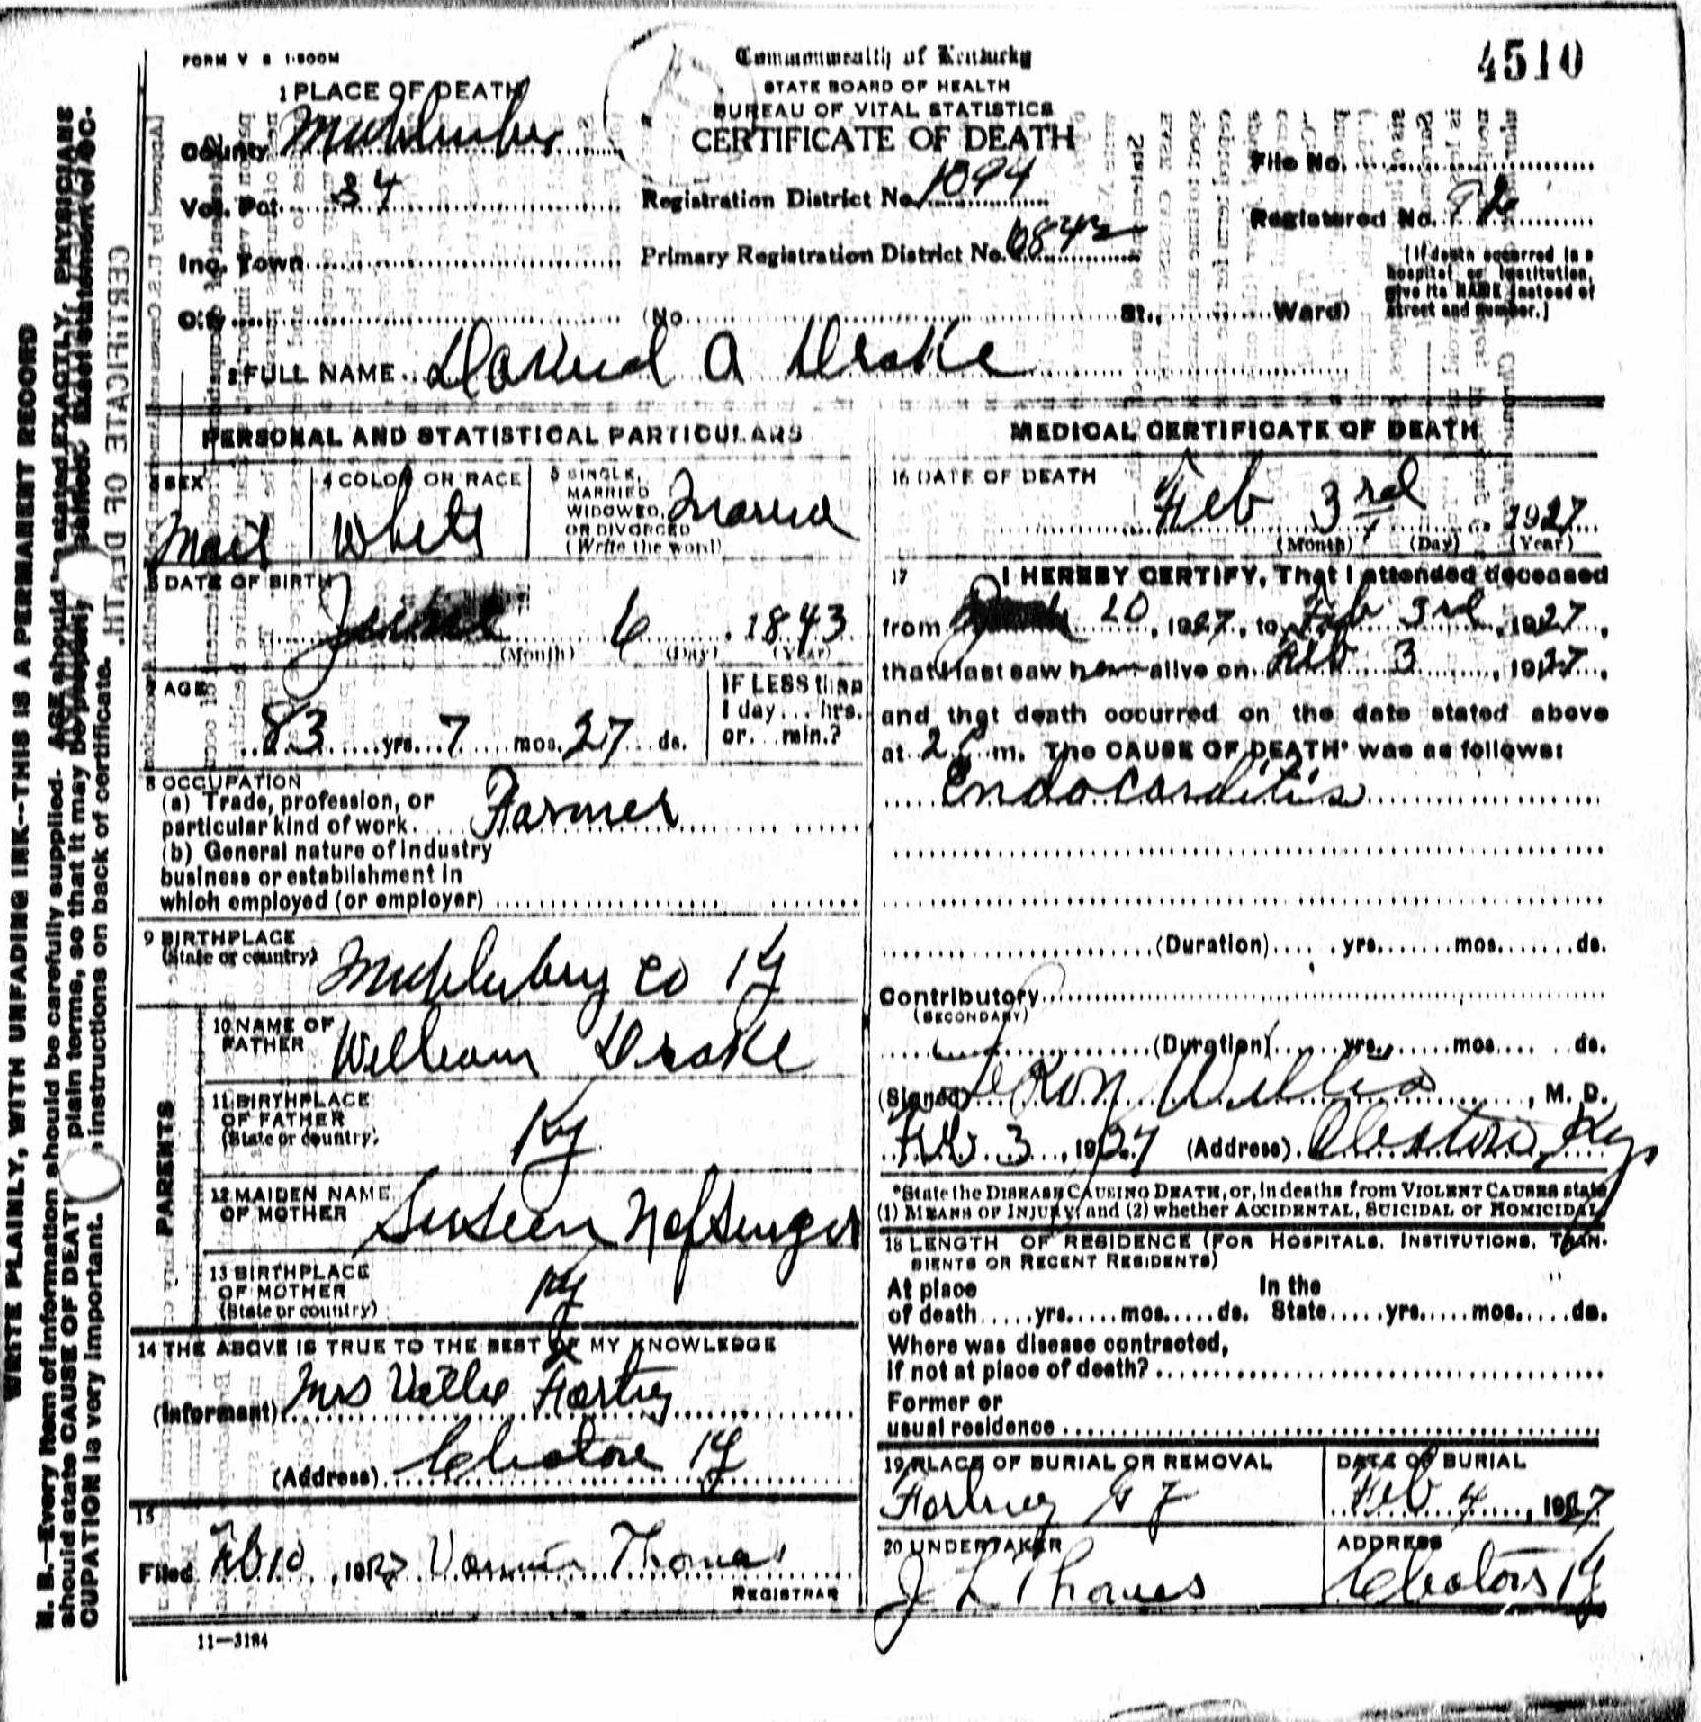 FORM V S 1-500M
4510
Commonwealth of Kentucky
STATE BOARD OF HEALTH
BUREAU OF VITAL STATISTICS
CERTIFICATE OF DEATH
1 PLACE OF DEATH
County Muhlenberg
Vot. Pct. 34
Inc. Town
City
Registration District No. 1094
Primary Registration District No. 6842
(No. St., Ward)
File No.
Registered No.
[If death occurred in a
hospital or institution,
give its NAME instead of
street and number.]
2 FULL NAME David A Drake
PERSONAL AND STATISTICAL PARTICULARS
3 SEX
Mail
4 COLOR OR RACE
White
5 SINGLE,
MARRIED
WIDOWED,
OR DIVORCED
(Write the word)
Married
6 DATE OF BIRTH
June 6, 1843
(Month) (Day) (Year)
7 AGE
83 yrs. 7 mos. 27 ds.
IF LESS than
1 day... hrs.
or... min.?
8 OCCUPATION
(a) Trade, profession, or
particular kind of work. Farmer
(b) General nature of industry
business or establishment in
which employed (or employer)
9 BIRTHPLACE
(State or country)
Muhlenberg Co Ky
PARENTS
10 NAME OF
FATHER
William Drake
11 BIRTHPLACE
OF FATHER
(State or country)
Ky
12 MAIDEN NAME
OF MOTHER
13 BIRTHPLACE
OF MOTHER
(State or country)
Ky
14 THE ABOVE IS TRUE TO THE BEST OF MY KNOWLEDGE
(Informant) Mrs Fortney
(Address) Cleaton Ky
15
Filed Feb 10, 1927 Thomas
REGISTRAR
11—3184
MEDICAL CERTIFICATE OF DEATH
16 DATE OF DEATH
Feb 3rd, 1927
(Month) (Day) (Year)
17 I HEREBY CERTIFY, That I attended deceased
from 20, 1927, to Feb 3rd, 1927,
that I last saw him alive on Feb 3, 1927,
and that death occurred on the date stated above
at 2 m. The CAUSE OF DEATH* was as follows:
Endocarditis
(Duration) yrs. mos. ds.
Contributory
(SECONDARY)
(Duration) yrs. mos. ds.
(Signed) Willis, M. D.
Feb 3, 1927 (Address) Cleaton Ky
*State the DISEASE CAUSING DEATH, or, in deaths from VIOLENT CAUSES state
(1) MEANS OF INJURY; and (2) whether ACCIDENTAL, SUICIDAL or HOMICIDAL
18 LENGTH OF RESIDENCE (FOR HOSPITALS, INSTITUTIONS, TRAN-
SIENTS OR RECENT RESIDENTS)
At place In the
of death yrs. mos. ds. State yrs. mos. ds.
Where was disease contracted,
if not at place of death?
Former or
usual residence
19 PLACE OF BURIAL OR REMOVAL
Fortney G Y
DATE OF BURIAL
Feb 4, 1927
20 UNDERTAKER
J L Thomas
ADDRESS
Cleaton Ky
WRITE PLAINLY, WITH UNFADING INK--THIS IS A PERMANENT RECORD
N. B.—Every item of information should be carefully supplied. AGE should be stated EXACTLY. PHYSICIANS
should state CAUSE OF DEATH plain terms, so that it may be properly
CUPATION is very important. instructions on back of certificate.
CERTIFICATE OF DEATH.